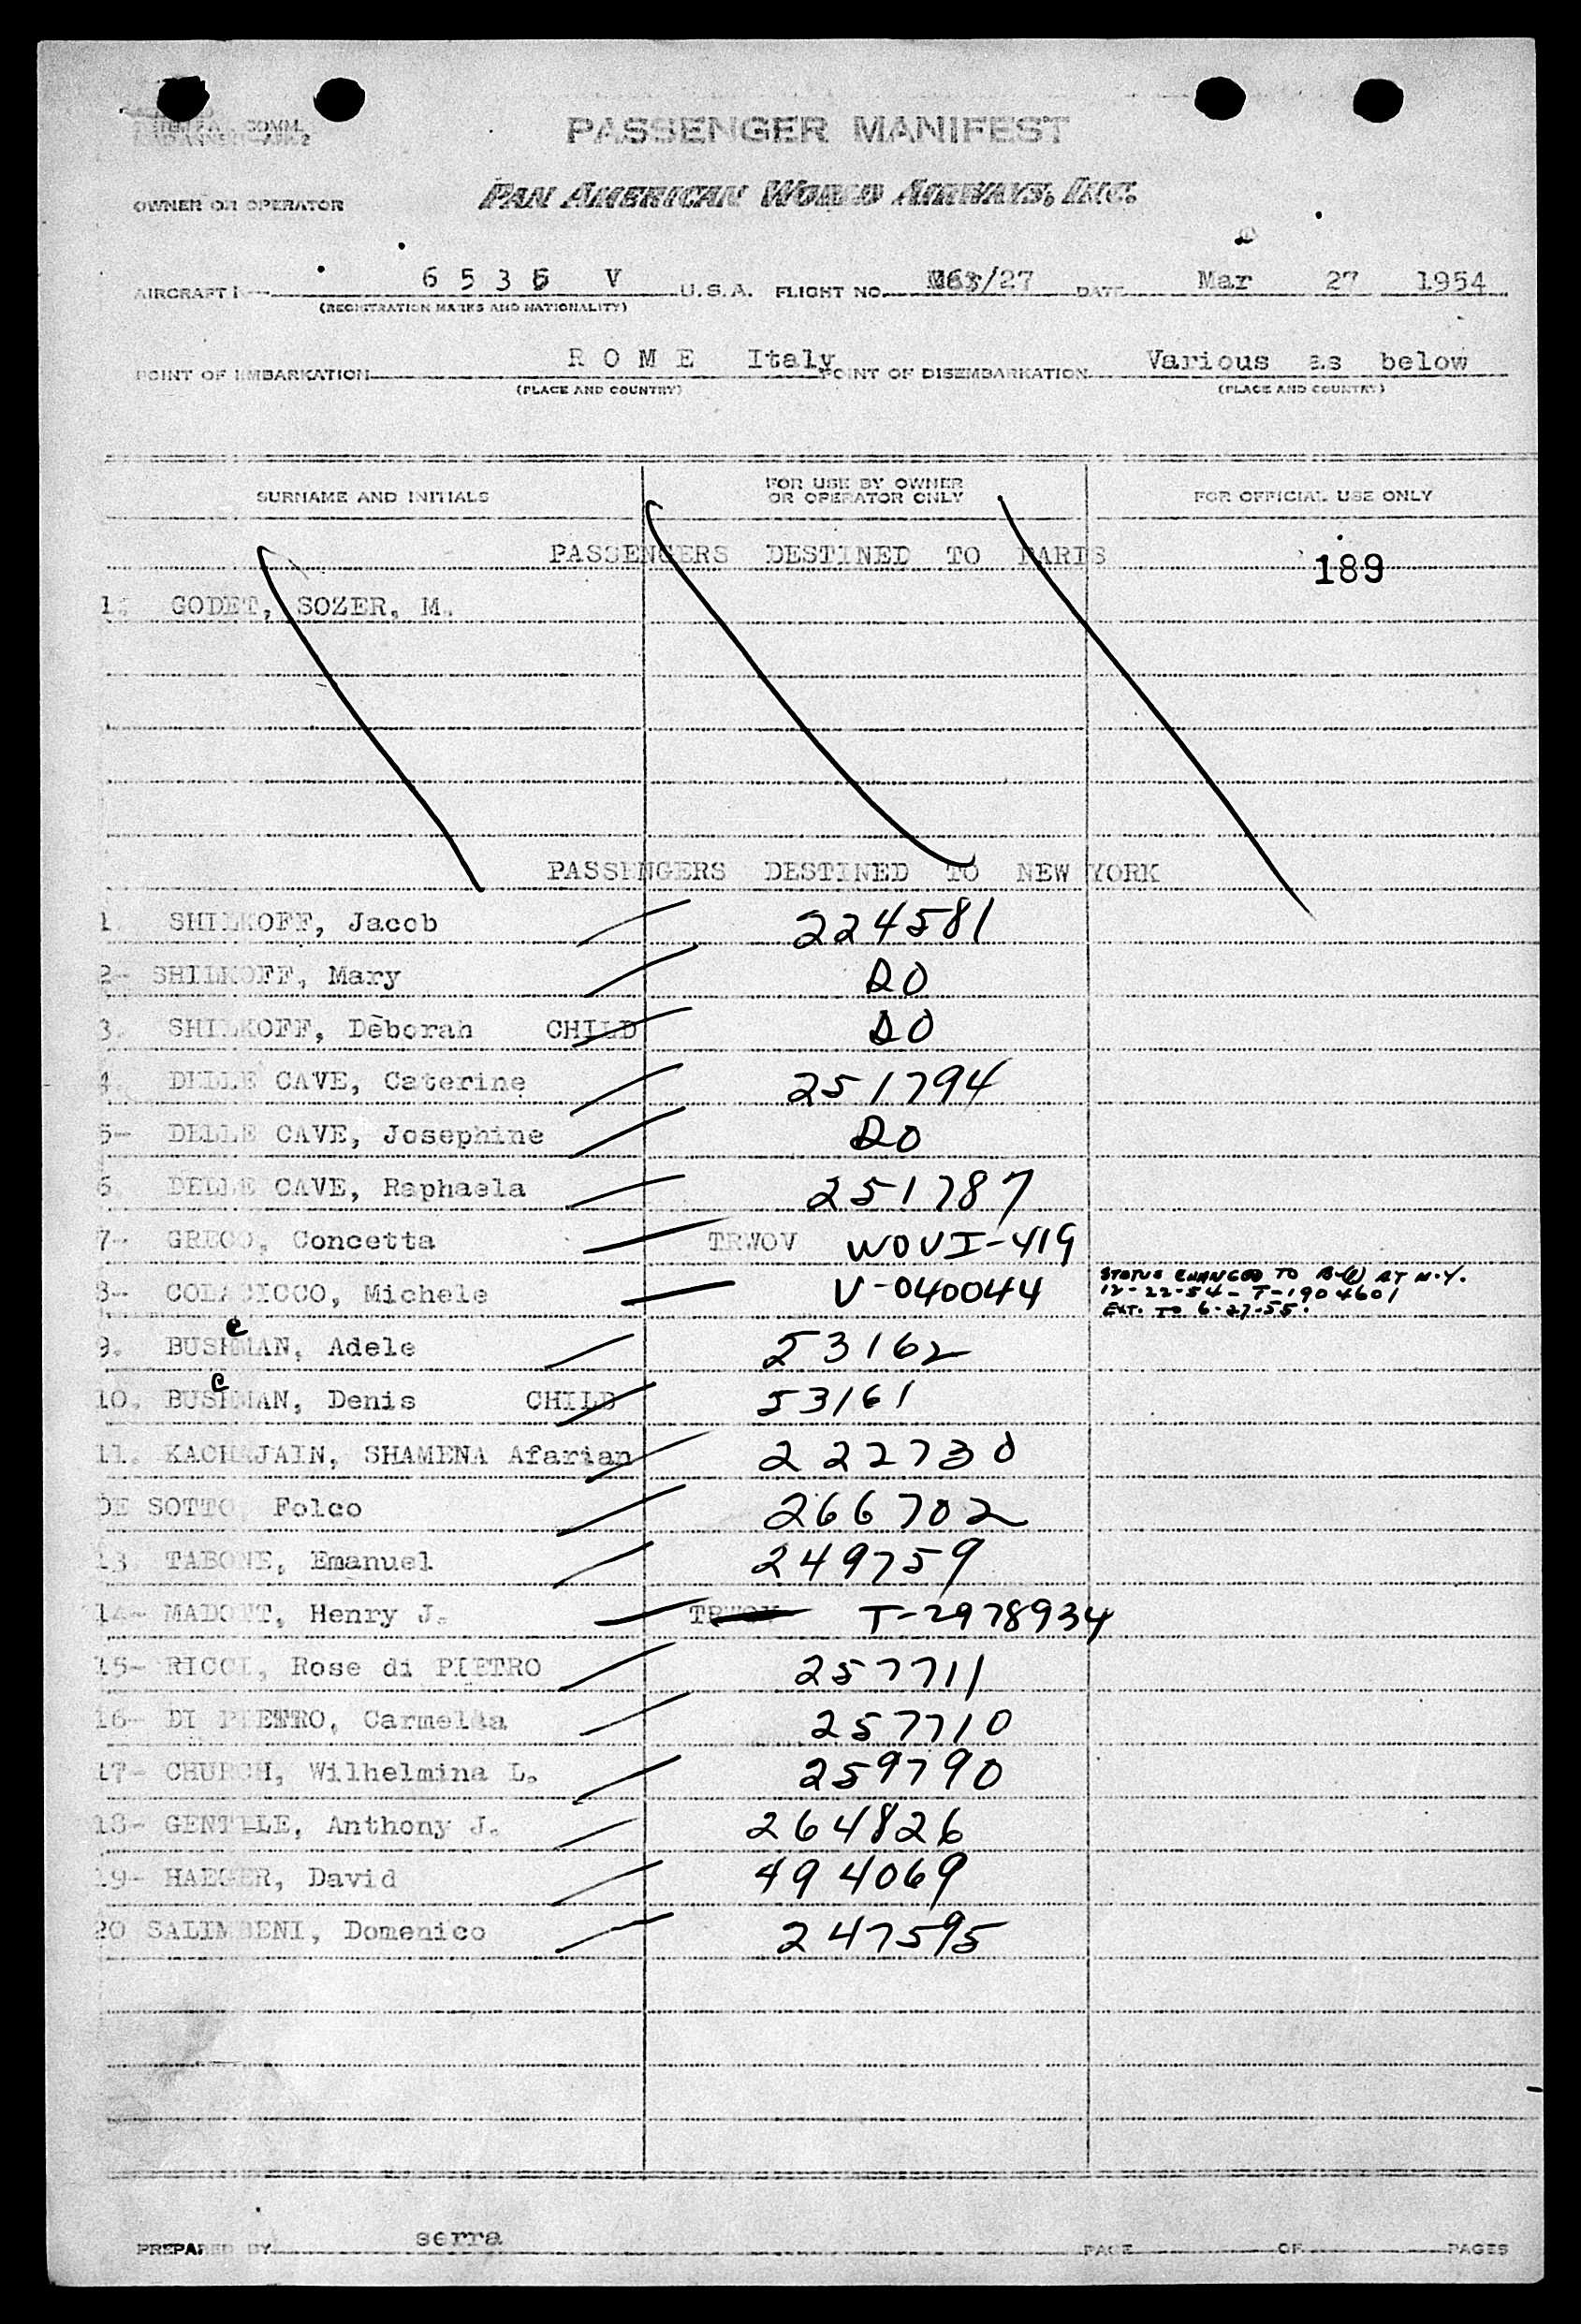 PASSENGER MANIFEST
OWNER OR OPERATOR PAN AMERICAN WORLD AIRWAYS, INC.
AIRCRAFT 6 5 3 6 V U.S.A. FLIGHT NO. /27 DATE Mar 27 1954
(REGISTRATION MARKS AND NATIONALITY)
POINT OF EMBARKATION R O M E Italy POINT OF DISEMBARKATION Various as below
(PLACE AND COUNTRY) (PLACE AND COUNTRY)
SURNAME AND INITIALS FOR USE BY OWNER OR OPERATOR ONLY FOR OFFICIAL USE ONLY
PASSENGERS DESTINED TO PARIS
189
1. GODET, SOZER, M.
PASSENGERS DESTINED TO NEW YORK
1. SHILKOFF, Jacob 224581
2- SHILKOFF, Mary DO
3. SHILKOFF, Deborah CHILD DO
4. DELLE CAVE, Caterine 251794
5- DELLE CAVE, Josephine DO
6. DELLE CAVE, Raphaela 251787
7- GRECO, Concetta TRWOV WOVI-419
8- COLACICCO, Michele V-040044 STATUS CHANGED TO B-(2) AT N.Y.
12-22-54 - T-1904601
EXT. TO 6-27-55.
9. BUSHMAN, Adele 53162
e
10. BUSHMAN, Denis CHILD 53161
e
11. KACHAJAIN, SHAMENA Afarian 222730
DE SOTTO Folco 266702
13. TABONE, Emanuel 249759
14- MADOTT, Henry J. TRWOV T-2978934
15- RICCI, Rose di PIETRO 257711
16- DI PIETRO, Carmelia 257710
17- CHURCH, Wilhelmina L. 259790
18- GENTILE, Anthony J. 264826
19- HAEGER, David 494069
20 SALIMBENI, Domenico 247595
PREPARED BY serra PAGE OF PAGES